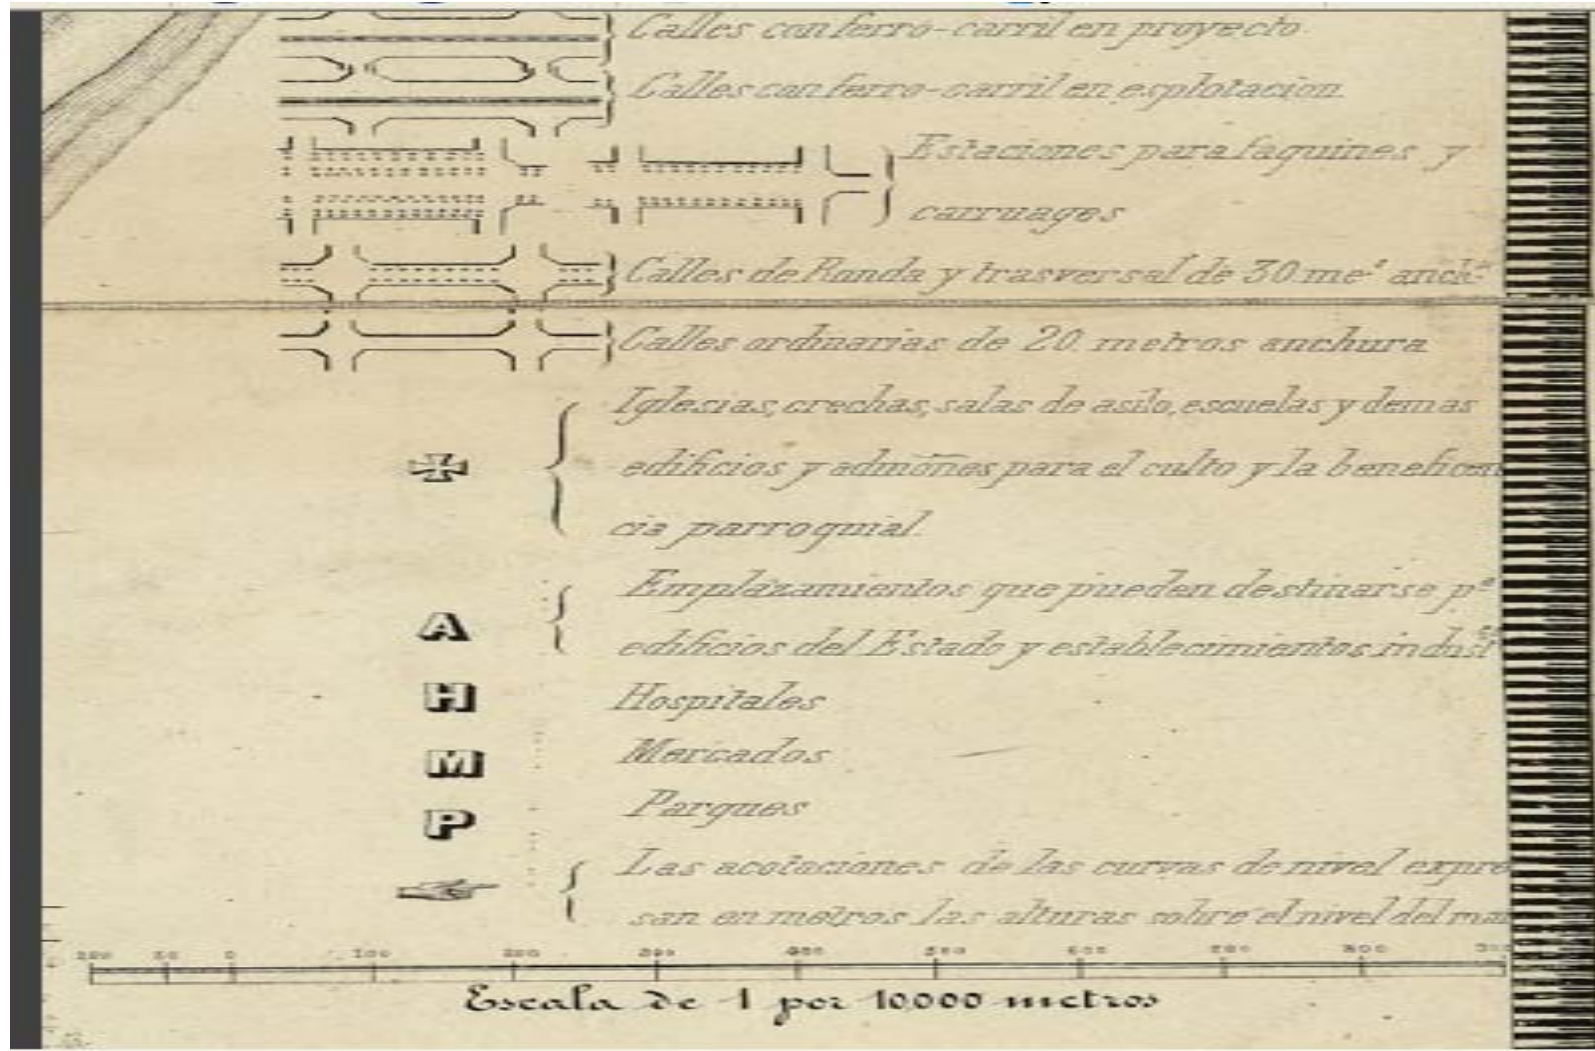 Calles con ferro-carril en proyecto.
Calles con ferro-carril en esplotacion.
Estaciones para faquines y
carruages
Calles de Ronda y trasversal de 30 meˢ anchª
Calles ordinarias de 20. metros anchura
Iglesias, crechas, salas de asilo, escuelas y demas
edificios y admōnes para el culto y la beneficen
cia parroquial.
Emplazamientos que pueden destinarse pª
edificios del Estado y establecimientos indust
A
H Hospitales
M Mercados
P Parques
Las acotaciones de las curvas de nivel expre
san en metros las alturas sobre el nivel del mar
100 50 0 100 200 300 400 500 600 700 800
Escala de 1 por 10.000 metros